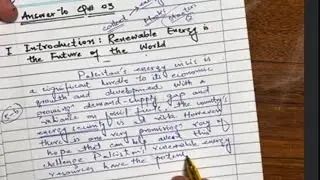 Answer to Q# 03
I Introduction: Renewable Energy is
the Future of the World
Pakistan's energy crisis is
a significant hurdle to its economic
growth and development. With a
growing demand-supply gap and
reliance on fossil fuels, the country's
energy security is at risk. However
there is one very promising ray of
hope that can help avert this
challenge Pakistan's renewable energy
resources have the potent